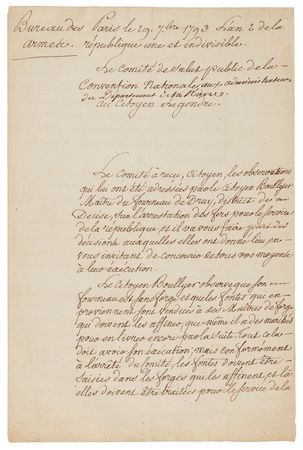 Bureau des armes. Paris le 29. 7.bre 1793 L'an 2 de la
république une et indivisible.
Le Comité de Salut public de la
Convention Nationale, aux administrateurs
du Département de la Nièvre
au Citoyen Legendre.
Le Comité a reçu, Citoyen, les observations
qui lui ont été adressées par le Citoyen Boullyer
Maitre du fourneau de Druy, district de
Decise, sur l'arrestation des fers pour le service
de la république et il va vous faire part des
décisions auxquelles elles ont donné lieu en
vous invitant de concourir de tous vos moyens
à leur exécution.
Le Citoyen Boullyer observe que son
fourneau est sans forge et que les fontes qui en
proviennent sont vendues à des Maitres de forges
qui doivent les affiner, que même il a des marchés
pour en livrer encore par la suite. Tout cela
doit avoir son exécution, mais conformément
à l'arrêté du Comité, les fontes doivent être
saisies dans les forges qui les affinent et là
elles doivent être traitées pour le service de la